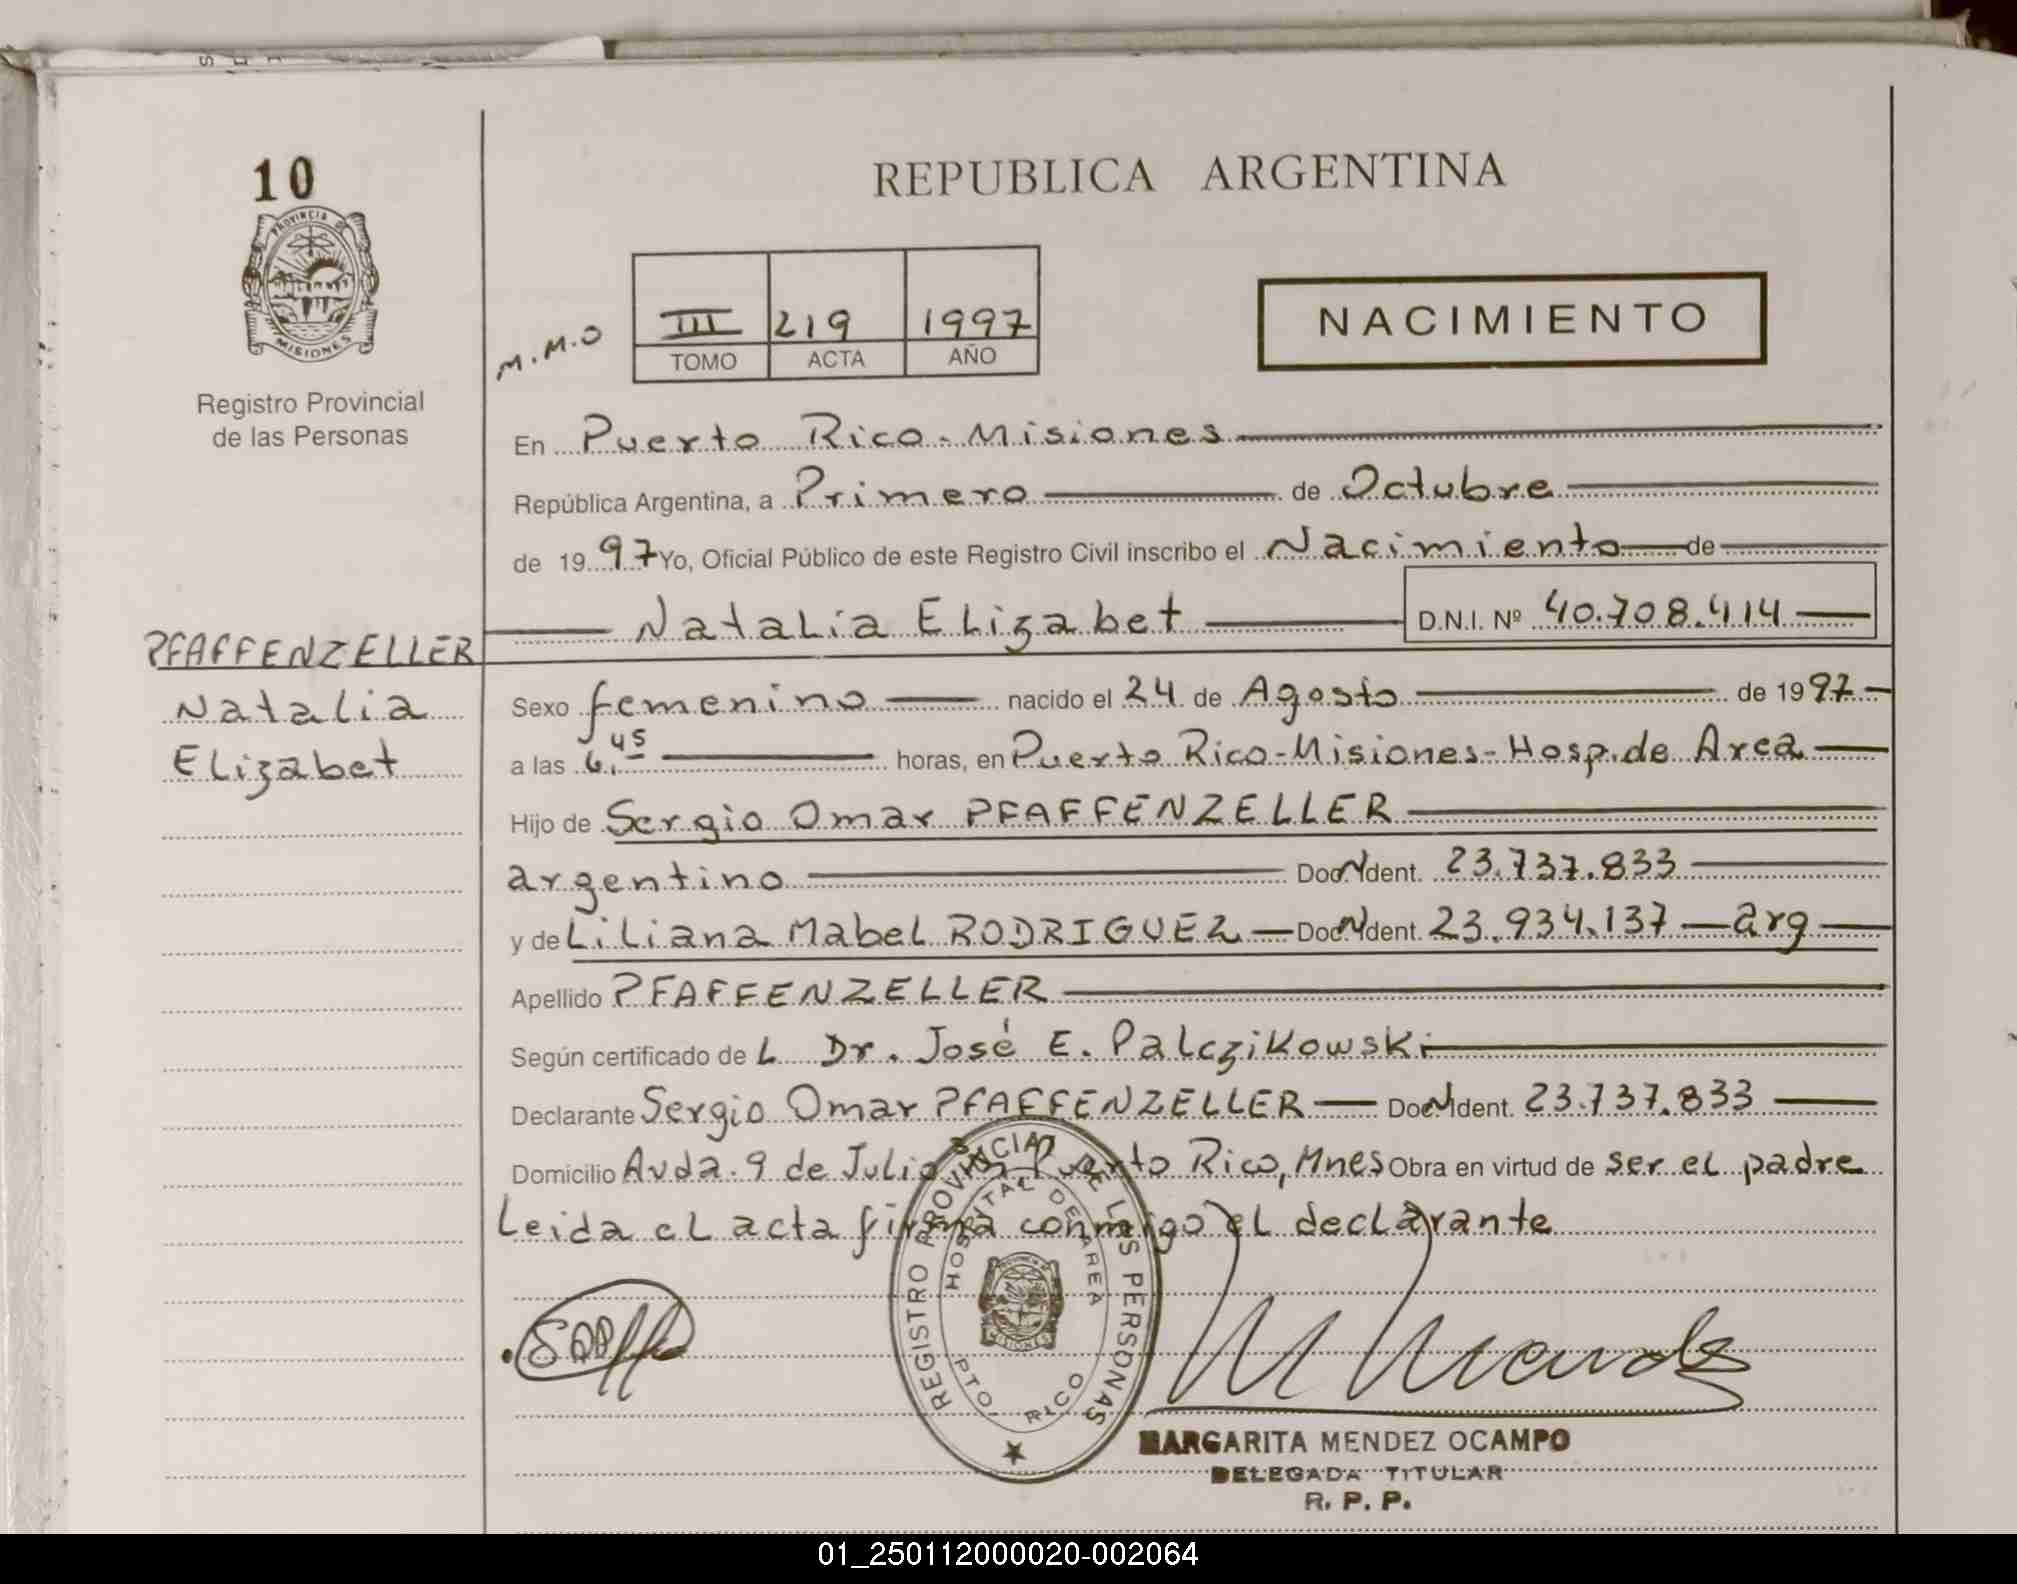 10
PROVINCIA DE
MISIONES
Registro Provincial
de las Personas
REPUBLICA ARGENTINA
M.M.O
III 219 1997
TOMO ACTA AÑO
NACIMIENTO
En Puerto Rico - Misiones
República Argentina, a Primero de Octubre
de 1997 Yo, Oficial Público de este Registro Civil inscribo el Nacimiento de
Natalia Elizabet D.N.I. Nº 40.708.414
PFAFFENZELLER
Natalia
Elizabet
Sexo femenino nacido el 24 de Agosto de 1997
a las 6,45 horas, en Puerto Rico-Misiones-Hosp.de Area
Hijo de Sergio Omar PFAFFENZELLER
argentino Doc. Ident. 23.737.833
y de Liliana Mabel RODRIGUEZ Doc. Ident. 23.934.137 - arg
Apellido PFAFFENZELLER
Según certificado de L Dr. José E. Palczikowski
Declarante Sergio Omar PFAFFENZELLER Doc. Ident. 23.737.833
Domicilio Avda. 9 de Julio Puerto Rico, Mnes Obra en virtud de ser el padre
Leida el acta firma conmigo el declarante
REGISTRO PROVINCIAL DE LAS PERSONAS
HOSPITAL DE AREA
PTO. RICO
MARGARITA MENDEZ OCAMPO
DELEGADA TITULAR
R. P. P.
01_250112000020-002064